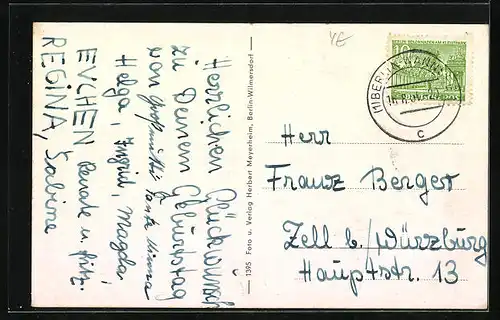 Herzlichen Glückwunsch
zu Deinem Geburtstag
von Großmutti, Tante Minna
Helga, Ingrid, Magda,
EVCHEN Renate u. Fritz.
REGINA, Sabine
1395 Foto u. Verlag Herbert Meyerheim, Berlin-Wilmersdorf
10
BERLIN
c
Herr
Franz Berger
Zell b/Würzburg
Hauptstr. 13